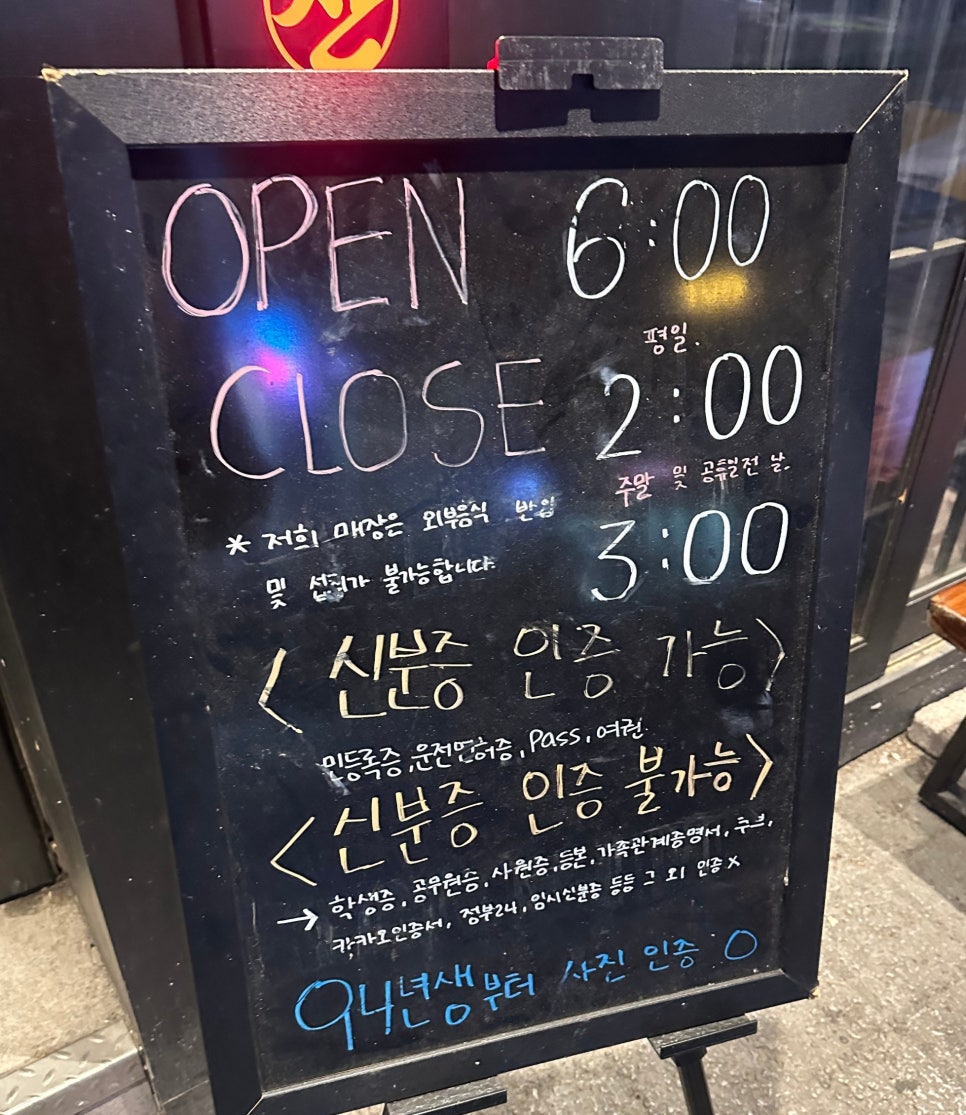 OPEN 6:00
평일.
CLOSE 2:00
주말 및 공휴일전 날.
3:00
* 저희 매장은 외부음식 반입
및 섭취가 불가능합니다.
<신분증 인증 가능>
민등록증, 운전면허증, Pass, 여권.
<신분증 인증 불가능>
→ 학생증, 공무원증, 사원증, 등본, 가족관계증명서,
카카오인증서, 정부24, 임시신분증 등등 그 외 인증 X
94년생부터 사진 인증 O